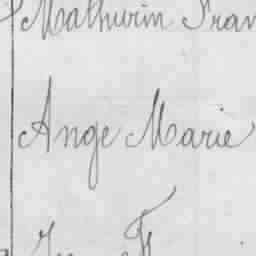 Mathurin Fran
Ange Marie